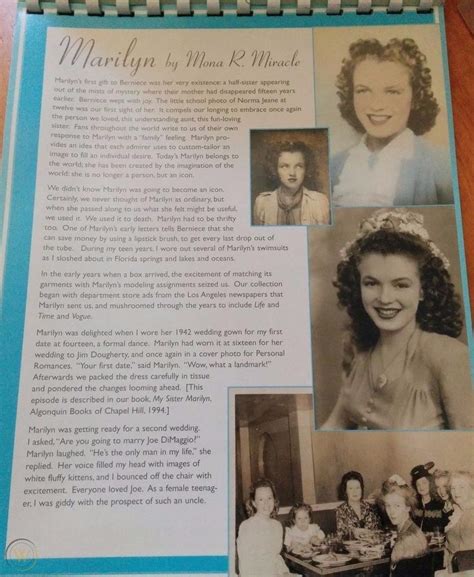 Marilyn by Mona R. Miracle
Marilyn's first gift to Berniece was her very existence: a half-sister appearing
out of the mists of mystery where their mother had disappeared fifteen years
earlier. Berniece wept with joy. The little school photo of Norma Jeane at
twelve was our first sight of her. It compels our longing to embrace once again
the person we loved, this understanding aunt, this fun-loving
sister. Fans throughout the world write to us of their own
response to Marilyn with a "family" feeling. Marilyn pro-
vides an idea that each admirer uses to custom-tailor an
image to fill an individual desire. Today's Marilyn belongs to
the world; she has been created by the imagination of the
world: she is no longer a person, but an icon.
We didn't know Marilyn was going to become an icon.
Certainly, we never thought of Marilyn as ordinary, but
when she passed along to us what she felt might be useful,
we used it. We used it to death. Marilyn had to be thrifty
too. One of Marilyn's early letters tells Berniece that she
can save money by using a lipstick brush, to get every last drop out of
the tube. During my teen years, I wore out several of Marilyn's swimsuits
as I sloshed about in Florida springs and lakes and oceans.
In the early years when a box arrived, the excitement of matching its
garments with Marilyn's modeling assignments seized us. Our collection
began with department store ads from the Los Angeles newspapers that
Marilyn sent us, and mushroomed through the years to include Life and
Time and Vogue.
Marilyn was delighted when I wore her 1942 wedding gown for my first
date at fourteen, a formal dance. Marilyn had worn it at sixteen for her
wedding to Jim Dougherty, and once again in a cover photo for Personal
Romances. "Your first date," said Marilyn. "Wow, what a landmark!"
Afterwards we packed the dress carefully in tissue
and pondered the changes looming ahead. [This
episode is described in our book, My Sister Marilyn,
Algonquin Books of Chapel Hill, 1994.]
Marilyn was getting ready for a second wedding.
I asked, "Are you going to marry Joe DiMaggio?"
Marilyn laughed. "He's the only man in my life," she
replied. Her voice filled my head with images of
white fluffy kittens, and I bounced off the chair with
excitement. Everyone loved Joe. As a female teenag-
er, I was giddy with the prospect of such an uncle.